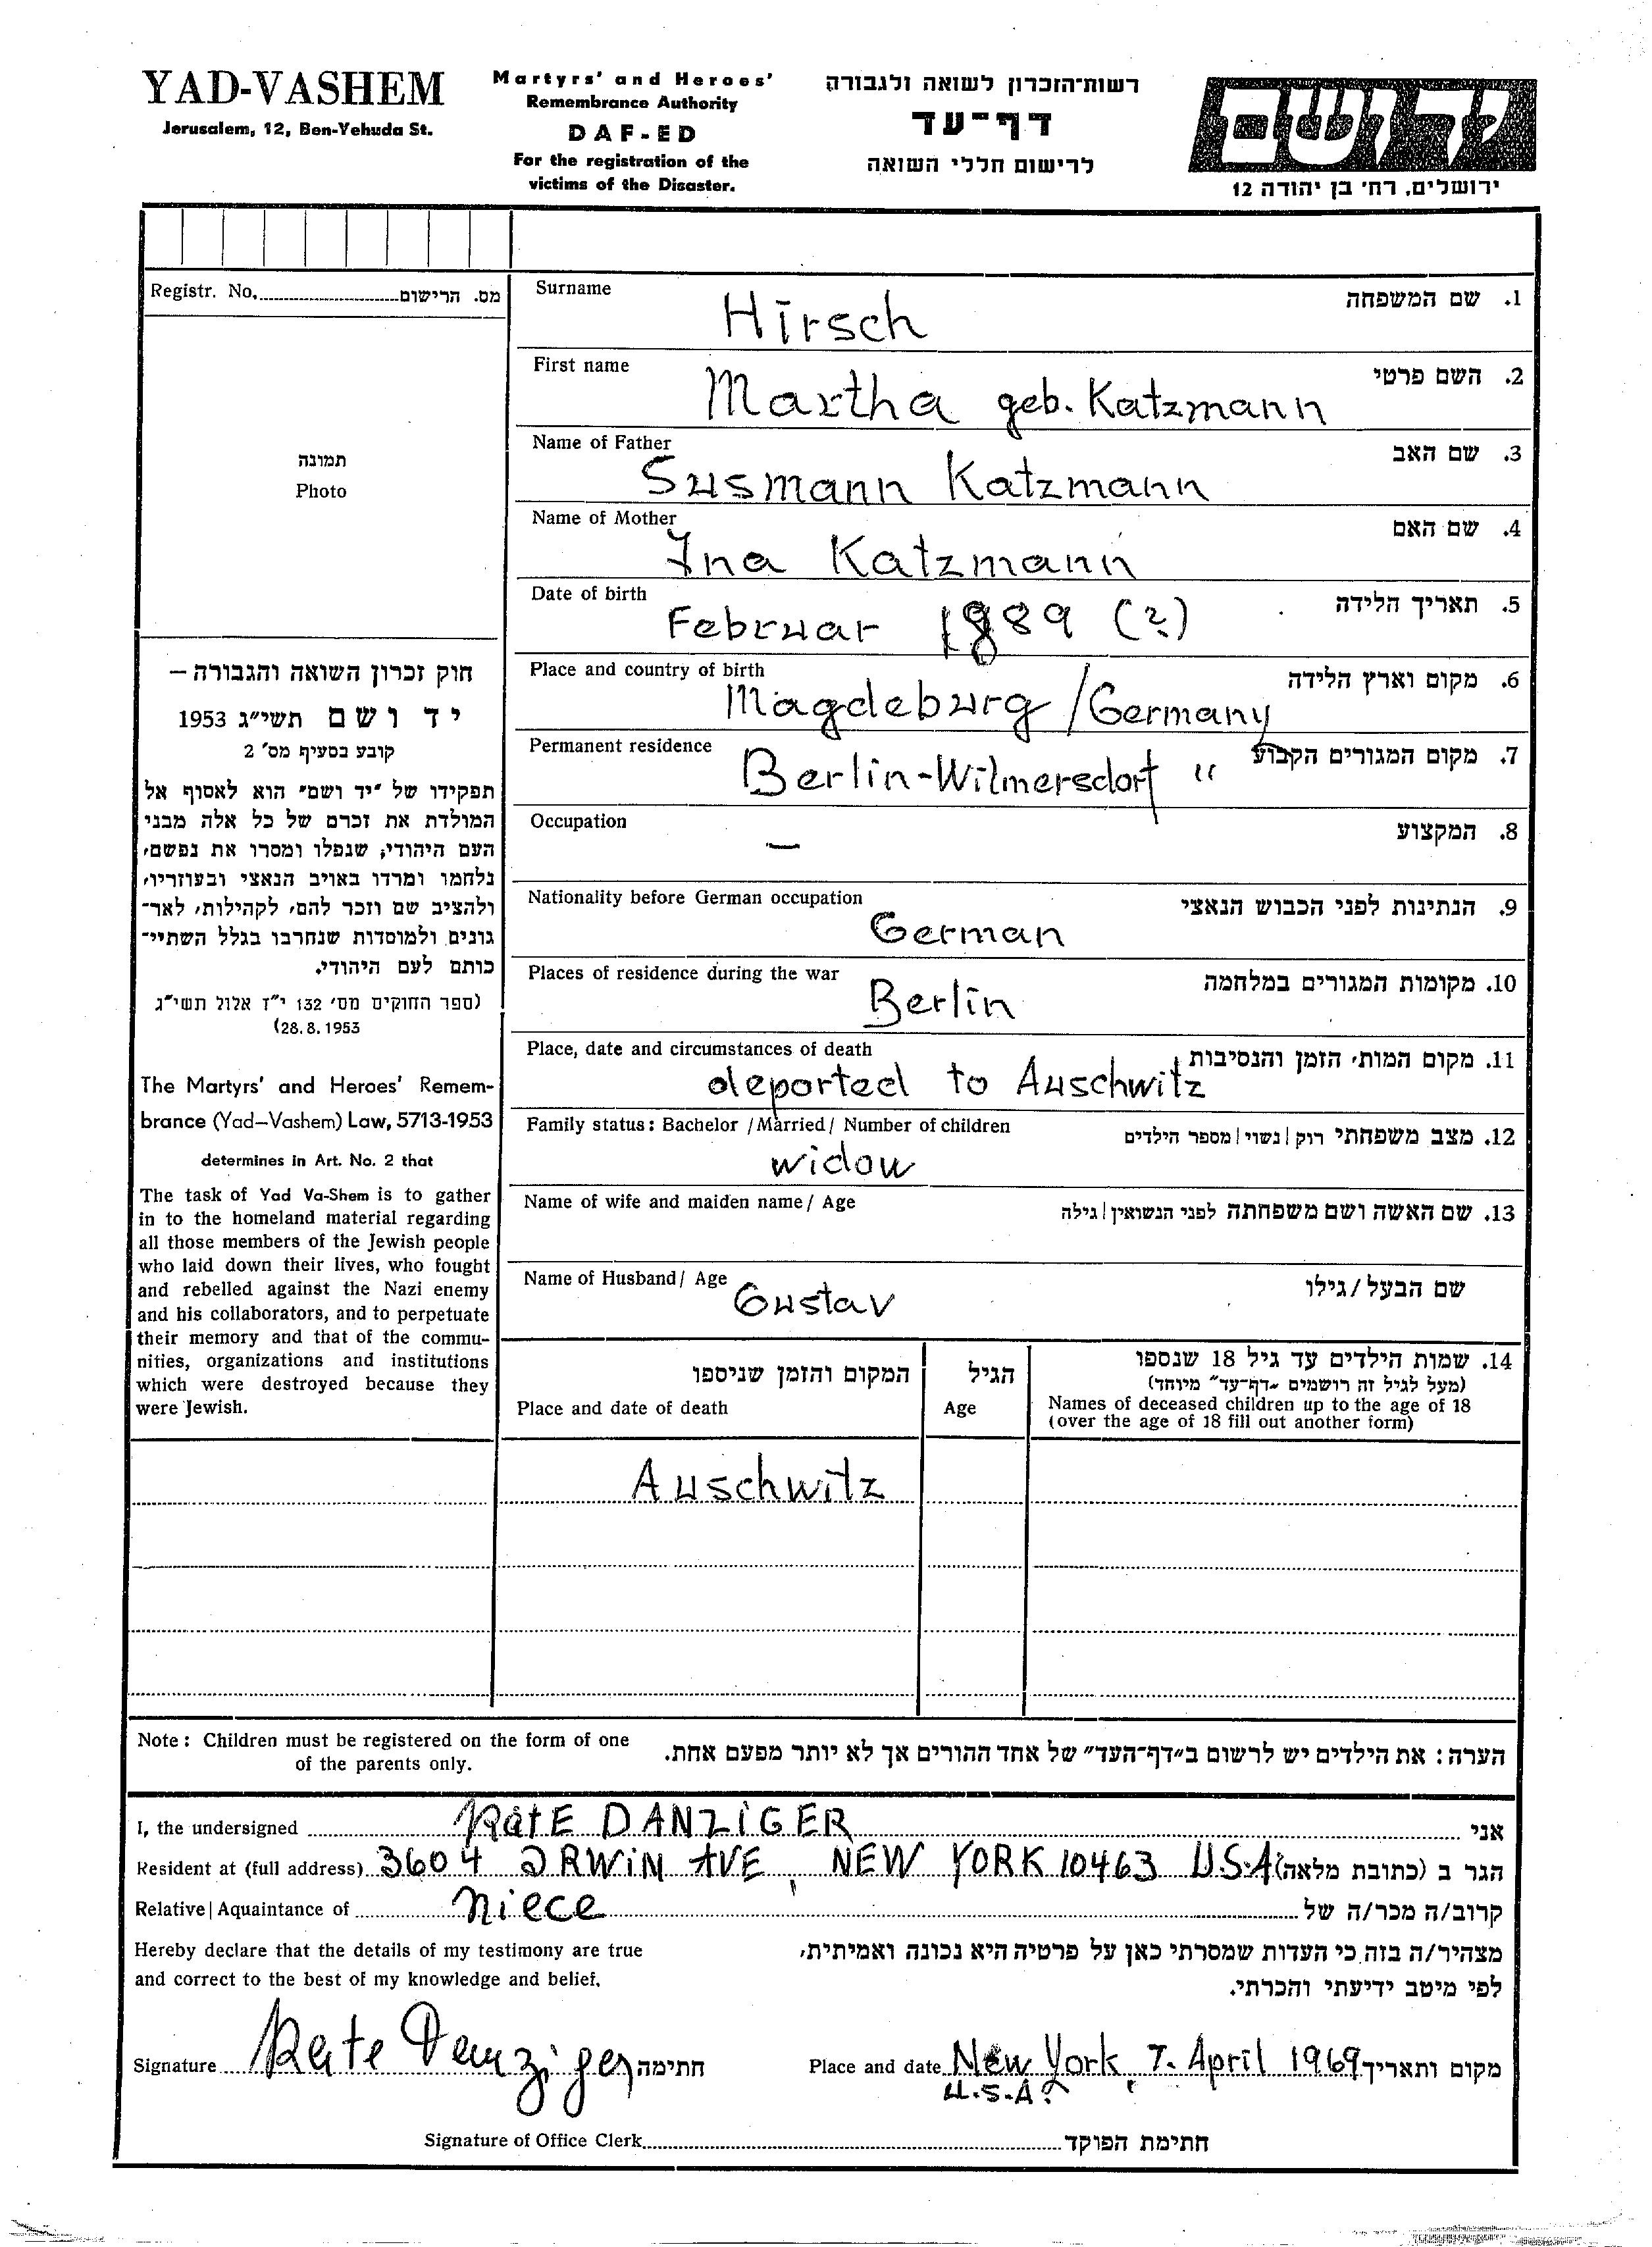 YAD-VASHEM
Jerusalem, 12, Ben-Yehuda St.
Martyrs' and Heroes'
Remembrance Authority
DAF-ED
For the registration of the
victims of the Disaster.
רשות־הזכרון לשואה ולגבורה
דף־עד
לרישום חללי השואה
יד ושם
ירושלים, רח׳ בן יהודה 12
Registr. No. מס. הרישום
תמונה
Photo
חוק זכרון השואה והגבורה –
יד ושם תשי״ג 1953
קובע בסעיף מס׳ 2
תפקידו של ״יד ושם״ הוא לאסוף אל
המולדת את זכרם של כל אלה מבני
העם היהודי, שנפלו ומסרו את נפשם,
נלחמו ומרדו באויב הנאצי ובעוזריו,
ולהציב שם וזכר להם, לקהילות, לאר־
גונים ולמוסדות שנחרבו בגלל השתיי־
כותם לעם היהודי.
(ספר החוקים מס׳ 132 י״ז אלול תשי״ג
28.8.1953)
The Martyrs' and Heroes' Remem-
brance (Yad–Vashem) Law, 5713-1953
determines in Art. No. 2 that
The task of Yad Va-Shem is to gather
in to the homeland material regarding
all those members of the Jewish people
who laid down their lives, who fought
and rebelled against the Nazi enemy
and his collaborators, and to perpetuate
their memory and that of the commu-
nities, organizations and institutions
which were destroyed because they
were Jewish.
Surname 1. שם המשפחה
Hirsch
First name 2. השם פרטי
Martha geb. Katzmann
Name of Father 3. שם האב
Susmann Katzmann
Name of Mother 4. שם האם
Ina Katzmann
Date of birth 5. תאריך הלידה
Februar 1889 (?)
Place and country of birth 6. מקום וארץ הלידה
Magdeburg / Germany
Permanent residence 7. מקום המגורים הקבוע
Berlin-Wilmersdorf "
Occupation 8. המקצוע
—
Nationality before German occupation 9. הנתינות לפני הכבוש הנאצי
German
Places of residence during the war 10. מקומות המגורים במלחמה
Berlin
Place, date and circumstances of death 11. מקום המות, הזמן והנסיבות
deported to Auschwitz
Family status: Bachelor / Married / Number of children 12. מצב משפחתי רוק | נשוי | מספר הילדים
widow
Name of wife and maiden name / Age 13. שם האשה ושם משפחתה לפני הנשואין | גילה
Name of Husband / Age שם הבעל / גילו
Gustav
המקום והזמן שניספו הגיל 14. שמות הילדים עד גיל 18 שנספו
(מעל לגיל זה רושמים ״דף־עד״ מיוחד)
Place and date of death Age Names of deceased children up to the age of 18
(over the age of 18 fill out another form)
Auschwitz
Note: Children must be registered on the form of one
of the parents only.
הערה: את הילדים יש לרשום ב״דף־העד״ של אחד ההורים אך לא יותר מפעם אחת.
I, the undersigned Käte DANZiGER אני
Resident at (full address) 3604 IRWiN AVE, NEW YORK 10463 U.S.A הגר ב (כתובת מלאה)
Relative | Aquaintance of niece קרוב/ה מכר/ה של
Hereby declare that the details of my testimony are true
and correct to the best of my knowledge and belief.
מצהיר/ה בזה כי העדות שמסרתי כאן על פרטיה היא נכונה ואמיתית,
לפי מיטב ידיעתי והכרתי.
Signature Kate Danziger חתימה
Place and date New York, 7. April 1969 מקום ותאריך
U.S.A.
Signature of Office Clerk חתימת הפוקד